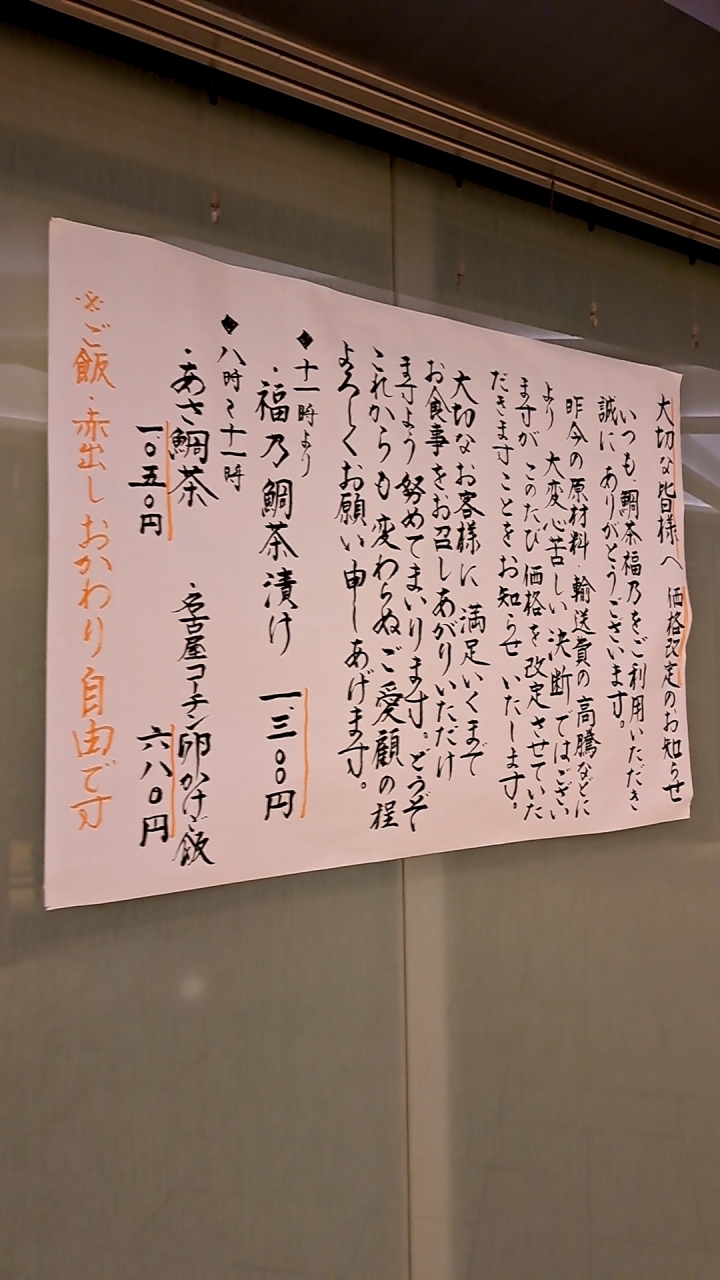 大切な皆様へ 価格改定のお知らせ
いつも鯛茶福乃をご利用いただき
誠にありがとうございます。
昨今の原材料・輸送費の高騰などに
より 大変心苦しい決断ではござい
ますが このたび価格を改定させていた
だきますことをお知らせいたします。
大切なお客様に満足いくまで
お食事をお召しあがりいただけ
ますよう努めてまいります。どうぞ
これからも変わらぬご愛顧の程
よろしくお願い申しあげます。
◆十一時より
・福乃鯛茶漬け 一、三〇〇円
◆八時〜十一時
・あさ鯛茶
一〇五〇円
・名古屋コーチン卵かけご飯
六八〇円
※ご飯・赤出しおかわり自由です